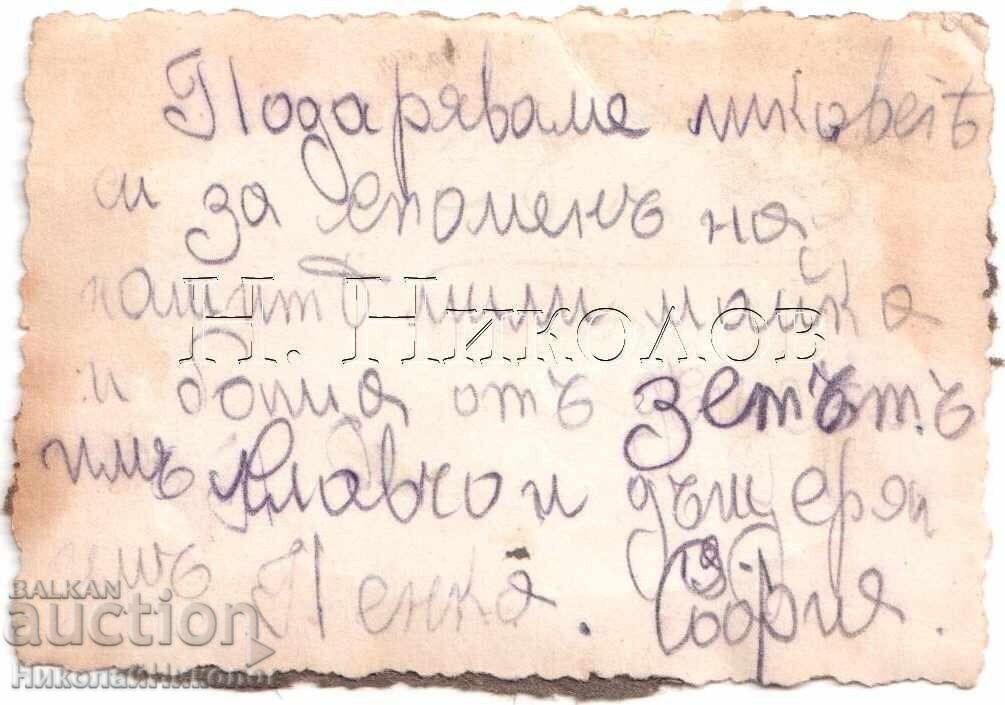 Подаряваме ликоветѣ
си за споменъ на
нашитѣ мили майка
Н. Николов
и баща отъ зетътъ
имъ Славчо и дъщеря
имъ Пенка. София.
BALKAN
auction
НиколайНиколов